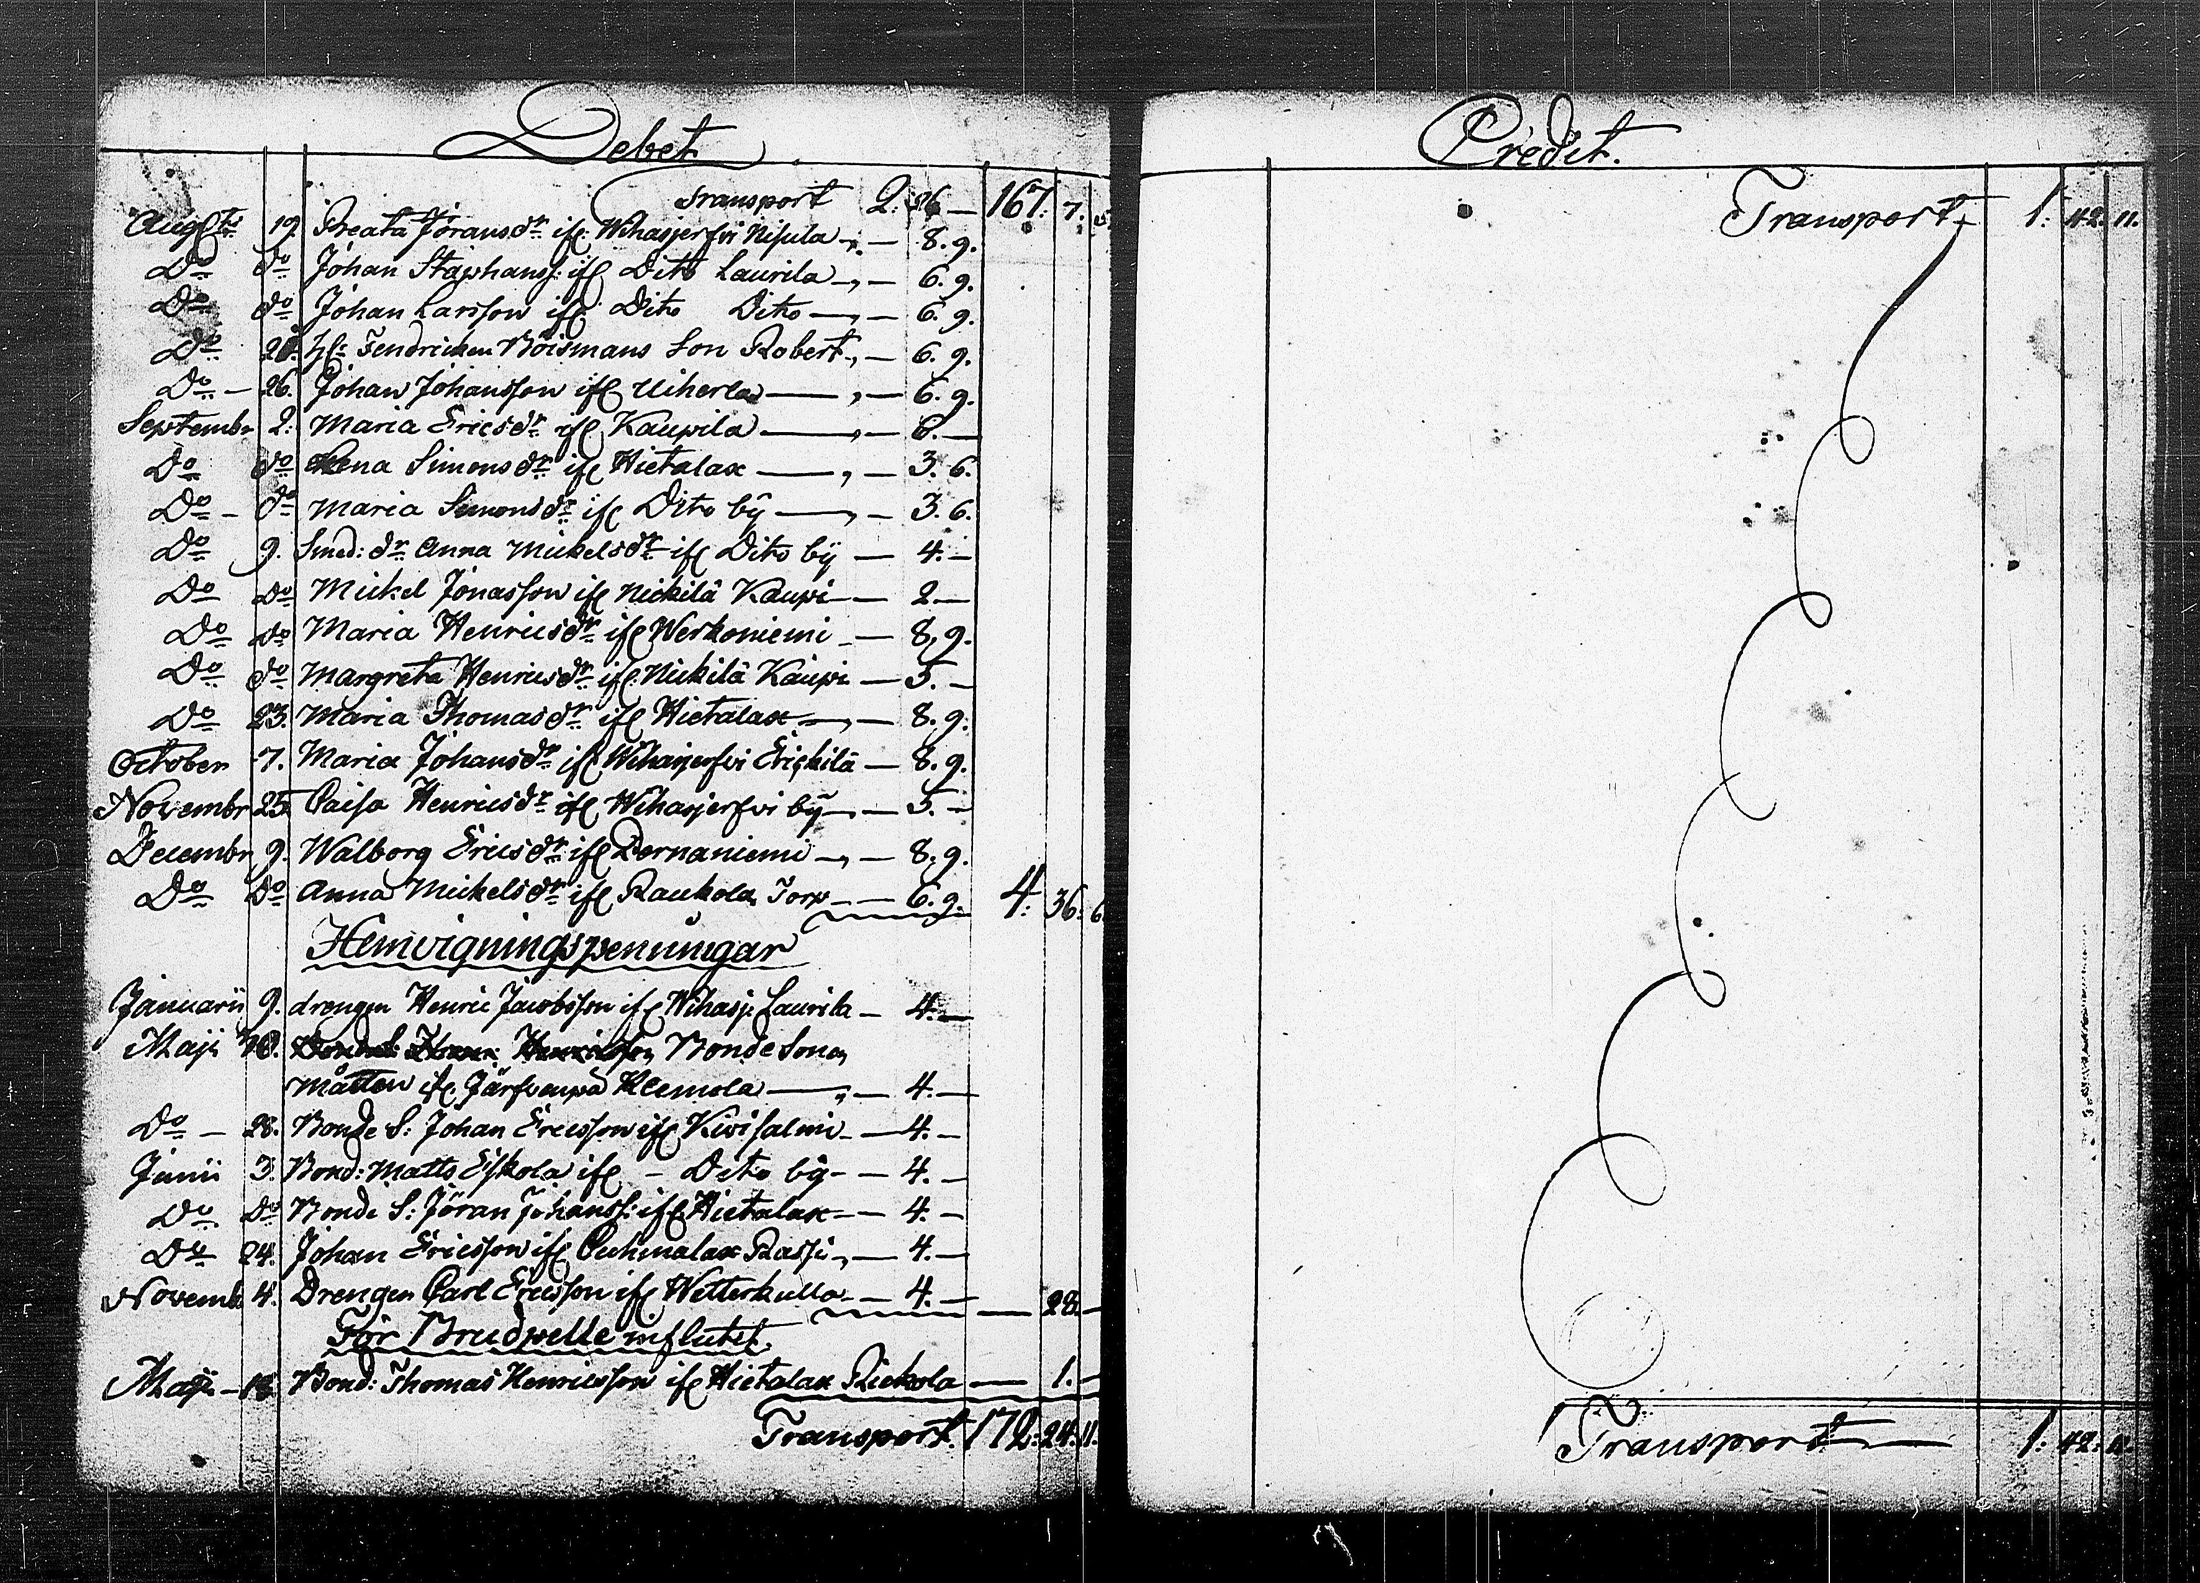 Debet
Transport 2: 26 — 167: 7: 5
Augsti 19. Beata Jöransdr ifr Wihasjerfvi Nisula „ — 8. 9.
Do do Johan Staphanss: ifr Dito Laurila „ — 6. 9.
Do do Johan Larsson ifr Dito Dito — „ — 6. 9.
Do Hr Fendricken Böismans Son Robert „ — 6. 9.
Do — 26. Johan Johansson ifr Uiherla — „ — 6. 9.
Septembr 2. Maria Ericsdr ifr Kaupila — „ — 6. —
Do do Lena Simonsdr ifr Hietalax — „ — 3. 6.
Do — do Maria Simonsdr ifr Dito bÿ — „ — 3. 6.
Do 9. Smed: dr Anna Mickelsdr ifr Dito bÿ — 4. —
Do do Mickel Jonasson ifr Nickilä Kaupi — 2 —
Do do Maria Henricsdr ifr Werkoniemi — 8. 9.
Do do Margreta Henricsdr ifr Nickilä Kaupi — 5. —
Do 23. Maria Thomasdr ifr Hietalax — „ — 8. 9.
October 7. Maria Johansdr ifr Wihasjerfvi Erickilä — 8. 9.
Novembr 25 Caisa Henricsdr ifr Wihasjerfvi bÿ — „ — 5. —
Decembr 9. Walborg Ericsdr ifr Pernaniemi — „ — 8. 9.
Do Do Anna Mickelsdr ifr Raukola Torp — — 6. 9. 4: 36: 6
Hemvigningspenningar
Januarii 9. drengen Henric Jacobsson ifr Wihasj: Laurila — 4. —
Maji 18. Bonde Sonen
Måtten ifr Järfvenpä Klemola — „ — 4. —
Do — 28. Bonde S: Johan Ericsson ifr Kivisalmi — 4. —
Junii 3. Bond: Matts Eskola ifr — Dito bÿ — — 4. —
Do Do Bonde S: Jöran Johanss: ifr Hietalax — — 4. —
Do 24. Johan Ericsson ifr Puhmalax Rassi „ — 4. —
Novemb 4. Drengen Carl Ericsson ifr Wetterkulla — — 4. — — 28. —
För Brudpelle influtet.
Maji — 18. Bond: Thomas Henricsson ifr Hietalax Rickola — 1. —
Transport. 172: 24. 11.
Credit.
Transport 1: 42. 11.
Transport — 1: 42: 11.